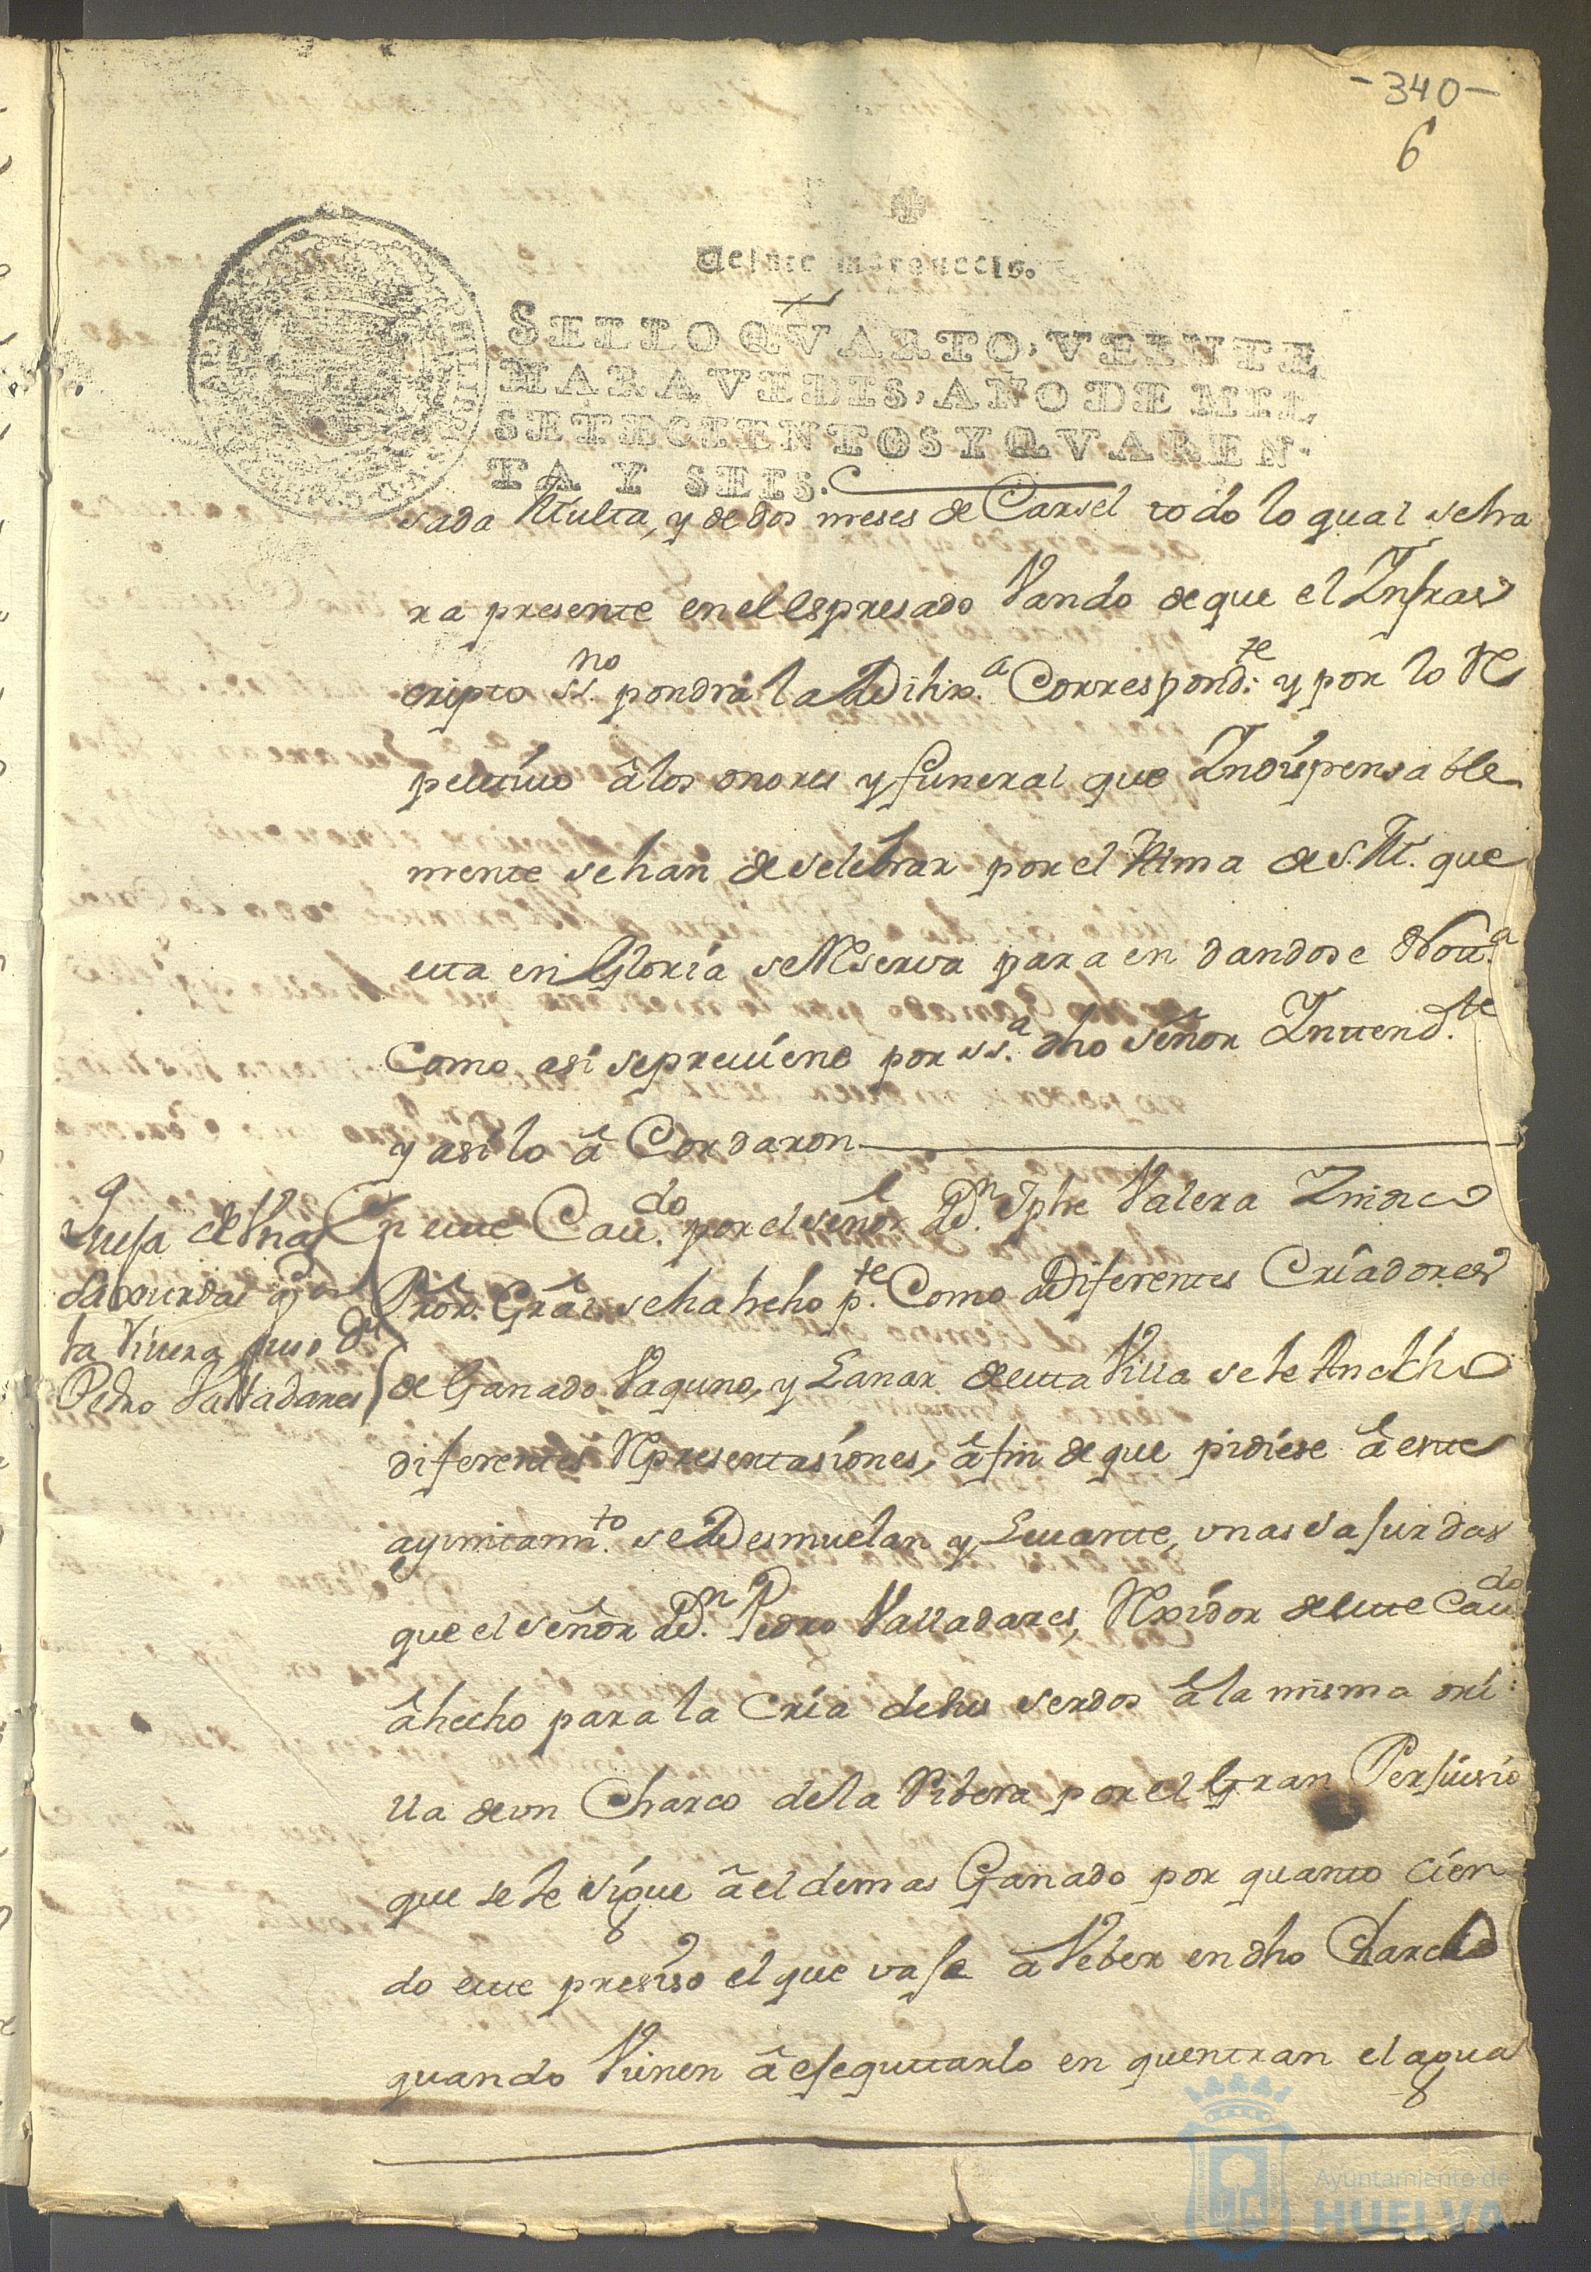 -340-
6
Veinte maravedis.
SELLO QVARTO, VEINTE
MARAVEDIS, AÑO DE MIL
SETECIENTOS Y QVAREN-
TA Y SEIS.
sada Multa, y de dos meses de Carsel todo lo qual se ha
ra presente en el espresado Vando de que el Infraes
cripto ss.no pondra la Dilix.a Correspond.te y por lo Res
pectivo â los onores y funeral que Indispensable
mente se han de selebrar por el Alma de S. M. que
esta en Gloria se Reserva para en dandose Noti.a
Como asi se previene por ss.a dho señor Yntend.te
y asi lo â Cordaron
Quesa de Vnas
Saxurdas q.e en
la Rivera puso Dn
Pedro Valladares
En este Cav.do por el señor Dn. Jphe Valera Zindico
Pror. Gral se ha hcho p.te Como Diferentes Criadores
de Ganado Vaguno, y Lanar de esta Villa se le An echo
diferentes Representasiones, â fin de que pidiese â este
ayuntam.to se Desmuelan y Levante, unas sasurdas
que el señor Dn. Pedro Valladares, Rexidor de este Cav.do
â hecho para la Cria de sus serdos â la misma ori
lla de un Charco de la Ribera por el Gran Persuisio
que se le sigue â el demas Ganado por quanto sien
do este presiso el que vase â Veber en dho Charco
quando Vienen â esequttarlo en quentran el agua
Ayuntamiento de
HUELVA